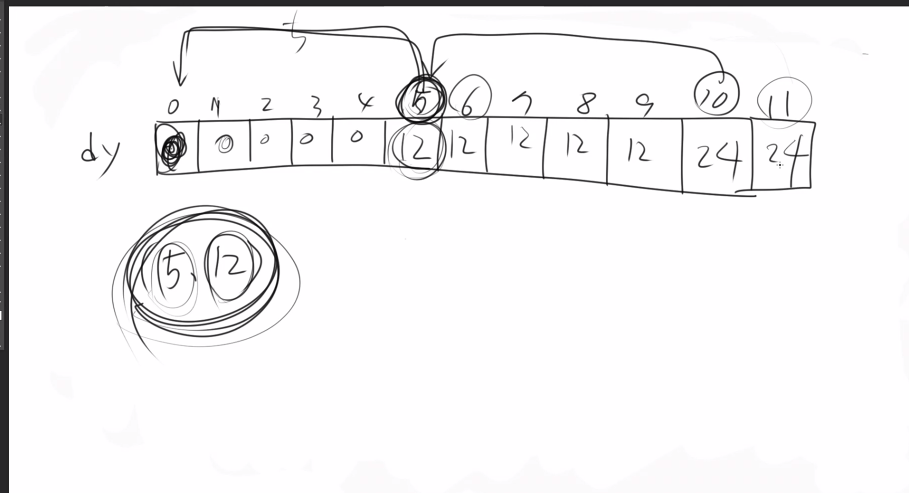 0 1 2 3 4 5 6 7 8 9 10 11
dy 0 0 0 0 12 12 12 12 12 24 24
5, 12